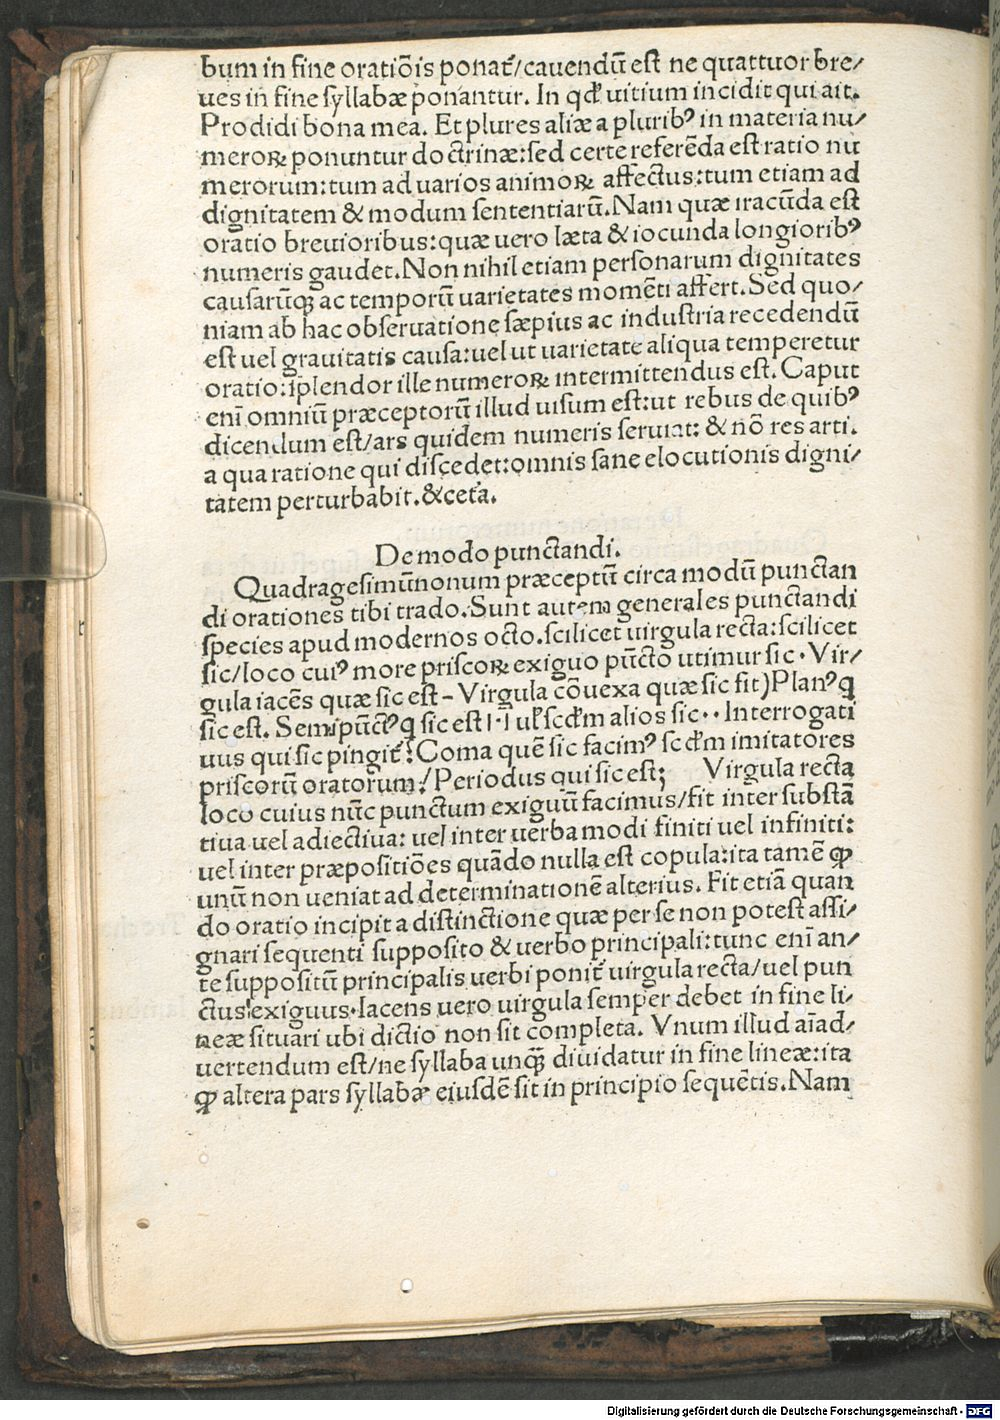 bum in fine oratiōis ponat᷑/cauendū est ne quattuor bre/
ues in fine syllabæ ponantur. In qđ uitium incidit qui ait.
Prodidi bona mea. Et plures aliæ a pluribꝰ in materia nu/
meroꝝ ponuntur doctrinæ: sed certe referēda est ratio nu
merorum: tum ad uarios animoꝝ affectus: tum etiam ad
dignitatem & modum sententiarū. Nam quæ iracūda est
oratio breuioribus: quæ uero læta & iocunda longioribꝰ
numeris gaudet. Non nihil etiam personarum dignitates
causarūqꝫ ac temporū uarietates momēti affert. Sed quo/
niam ab hac obseruatione sæpius ac industria recedendū
est uel grauitatis causa: uel ut uarietate aliqua temperetur
oratio: splendor ille numeroꝝ intermittendus est. Caput
enī omniū præceptorū illud uisum est: ut rebus de quibꝰ
dicendum est/ars quidem numeris seruiat: & nō res arti.
a qua ratione qui discedet: omnis sane elocutionis digni/
tatem perturbabit. & cet͛a.
De modo punctandi.
Quadragesimūnonum præceptū circa modū punctan
di orationes tibi trado. Sunt autem generales punctandi
species apud modernos octo. scilicet uirgula recta: scilicet
sic/loco cuiꝰ more priscoꝝ exiguo pūcto utimur sic · Vir/
gula iacēs quæ sic est - Virgula cōuexa quæ sic fit ) Planꝰ ꝗ
sic est. Semipūctꝰ ꝗ sic est |·| uł scđm alios sic ·· Interrogati
uus qui sic pingit᷑ ? Coma quē sic facimꝰ scđm imitatores
priscorū oratorum ./ Periodus qui sic est; Virgula recta
loco cuius nūc punctum exiguū facimus/fit inter substā
tiua uel adiectiua: uel inter uerba modi finiti uel infiniti:
uel inter præpositiōes quādo nulla est copula: ita tamē ꝙ
unū non ueniat ad determinationē alterius. Fit etiā quan
do oratio incipit a distinctione quæ per se non potest assi/
gnari sequenti supposito & uerbo principali: tunc enī an/
te suppositū principalis uerbi ponit᷑ uirgula recta/uel pun
ctus exiguus · Iacens uero uirgula semper debet in fine li/
neæ situari ubi dictio non sit completa. Vnum illud aīad/
uertendum est/ne syllaba unqꝫ̄ diuidatur in fine lineæ: ita
ꝙ altera pars syllabæ eiusdē sit in principio sequētis. Nam
Digitalisierung gefördert durch die Deutsche Forschungsgemeinschaft - DFG